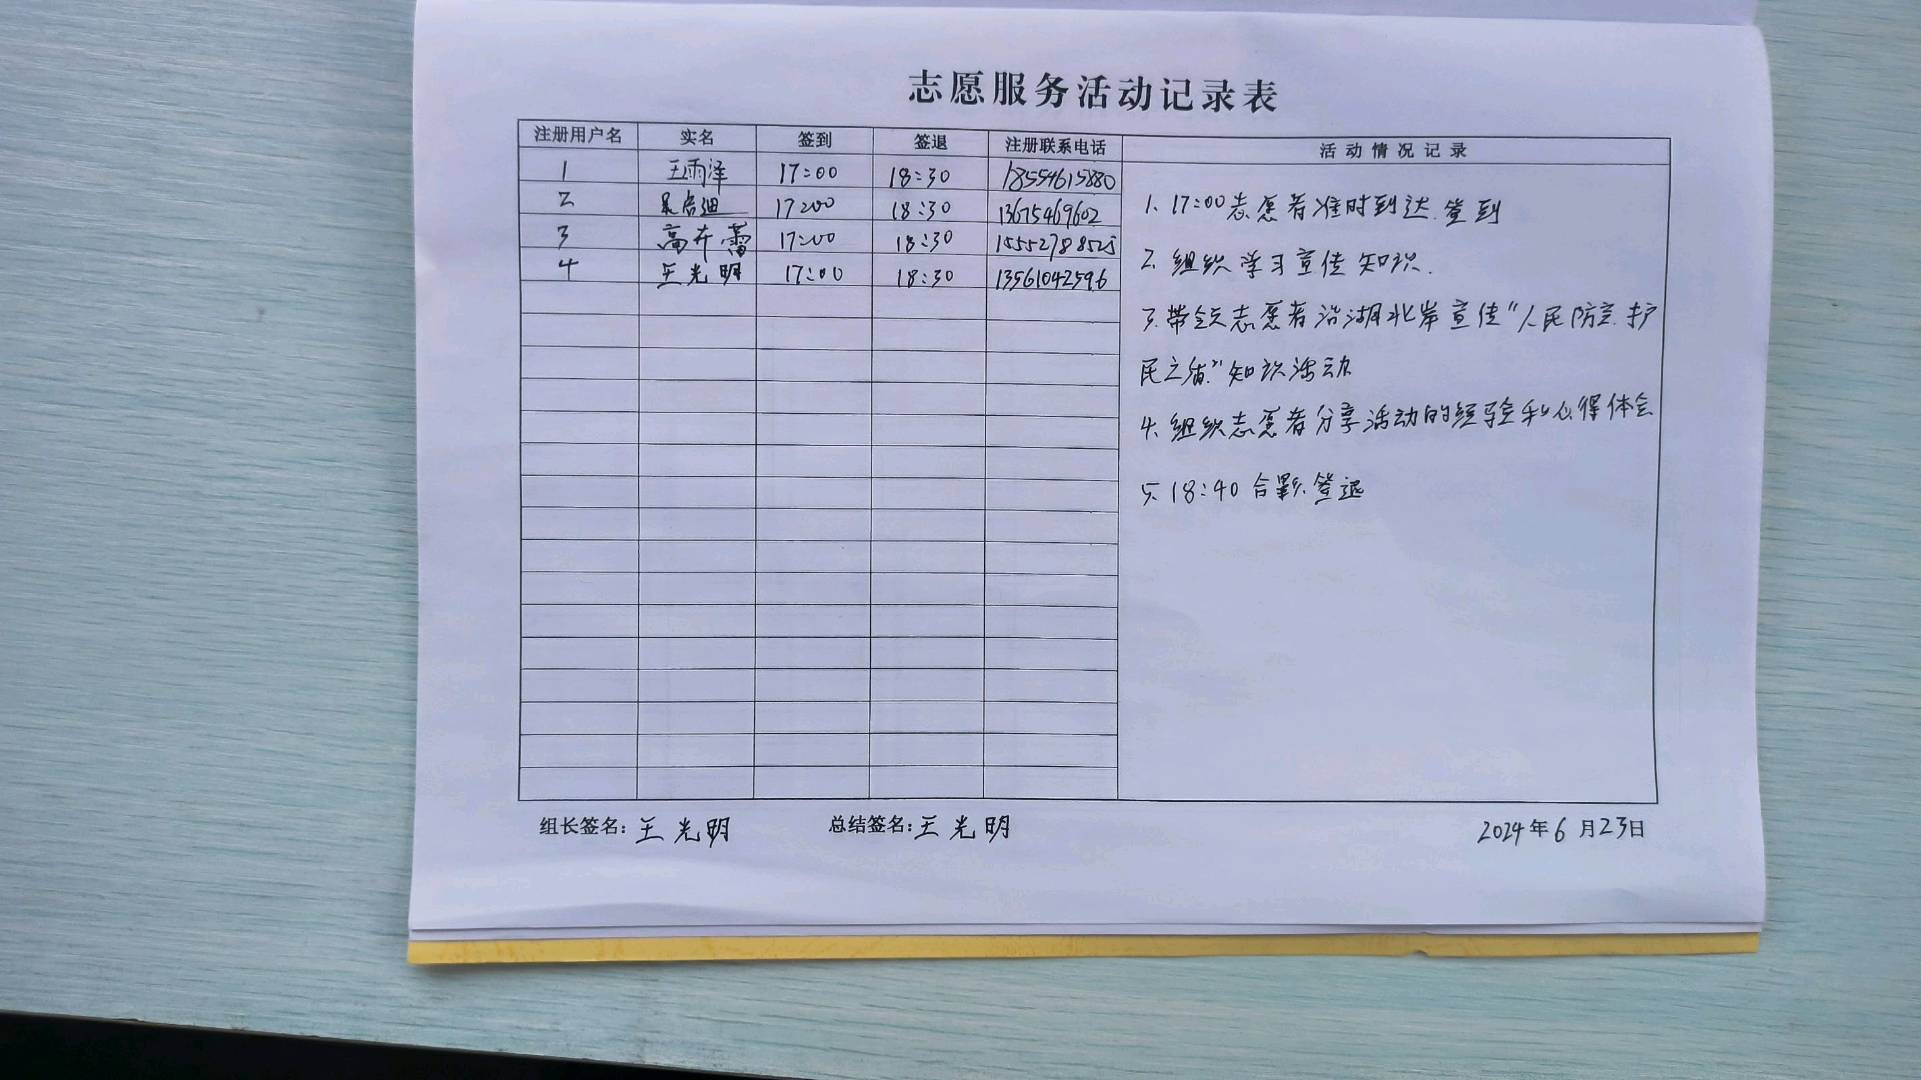 志愿服务活动记录表
注册用户名 实名 签到 签退 注册联系电话 活动情况记录
1 王雨泽 17:00 18:30 18554615880
2 17:00 18:30 13675469602
3 高卉蕾 17:00 18:30 15552788525
4 王光明 17:00 18:30 13561042596
1、17:00志愿者准时到达.签到
2. 组织学习宣传知识.
3.带领志愿者沿湖北岸宣传“人民防空.护
民之盾”知识活动
4、组织志愿者分享活动的经验和心得体会
5、18:40合影.签退
组长签名：王光明 总结签名：王光明 2024年6月23日